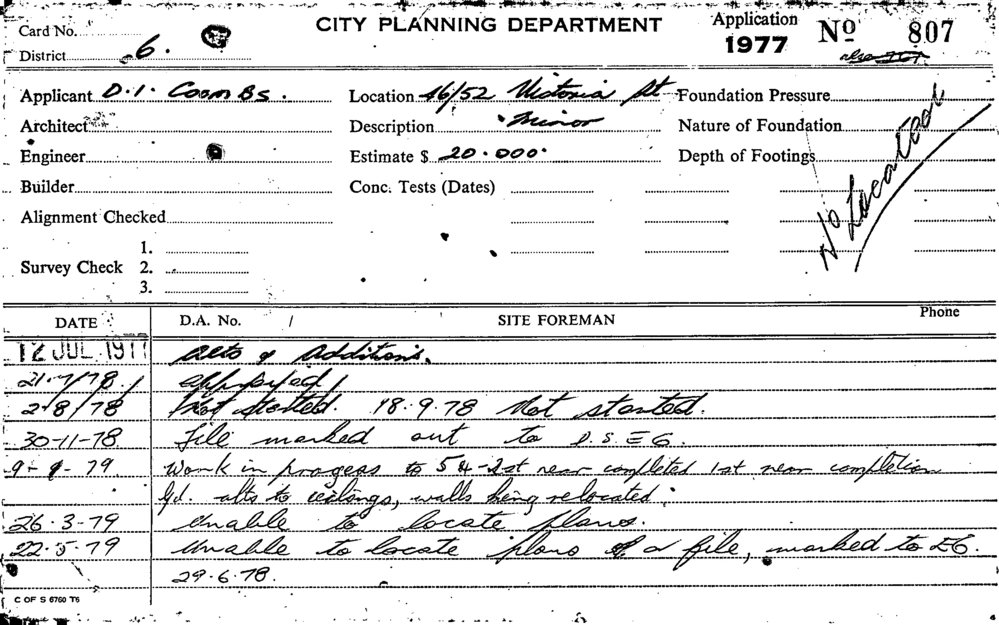 CITY PLANNING DEPARTMENT
Card No.
District 6.
Application 1977 No 807
Applicant D.I. Coombs. Location 46/52 Victoria St Foundation Pressure
Architect Description Minor Nature of Foundation
Engineer Estimate $ 20.000. Depth of Footings
Builder Conc. Tests (Dates)
Alignment Checked
No Located
1.
Survey Check 2.
3.
DATE D.A. No. / SITE FOREMAN Phone
12 JUL 1977 Alts & Additions.
21.7/78 approved
2/8/78 Not started. 18.9.78 Not started.
30-11-78 File marked out to D.S.E6.
9-9-79 Work in progess to 54-2st near completed 1st near completion
Gd. alts to ceilings, walls being relocated.
26.3-79 Unable to locate plans.
22.5.79 Unable to locate plans or file, marked to E6.
29.6.78.
C OF S 6760 T6